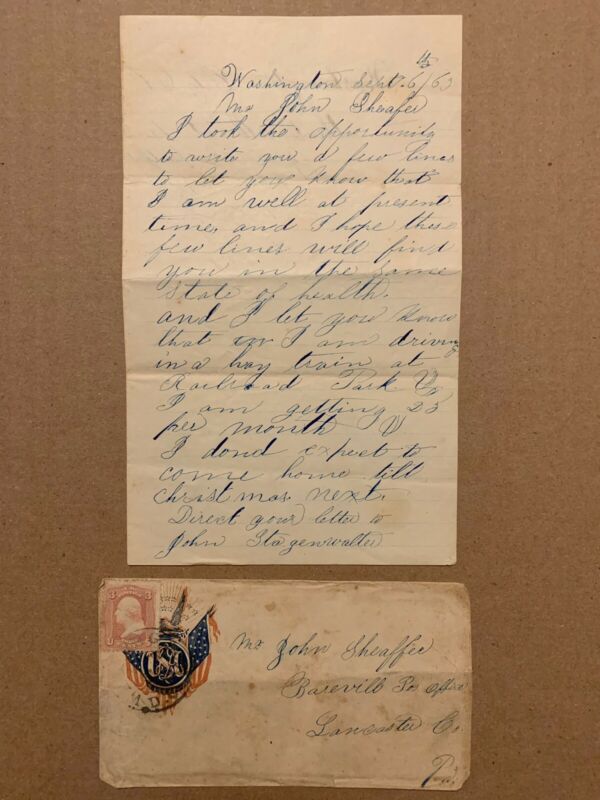 Washington Sept. 6th/63
Mr John Sheafer
I took the opportunity
to write you a few lines
to let you know that
I am well at present
time, and I hope these
few lines will find
you in the same
State of health.
and I let you know
that I am driving
in a hay train at
Railroad Park
I am getting 25
per month
I dond expect to
come home till
christmas next.
Direct your letter to
John Stagenwalter
3
3
US
Mr John Sheaffer
Barevill Po office
Lancaster Co.
Pa.